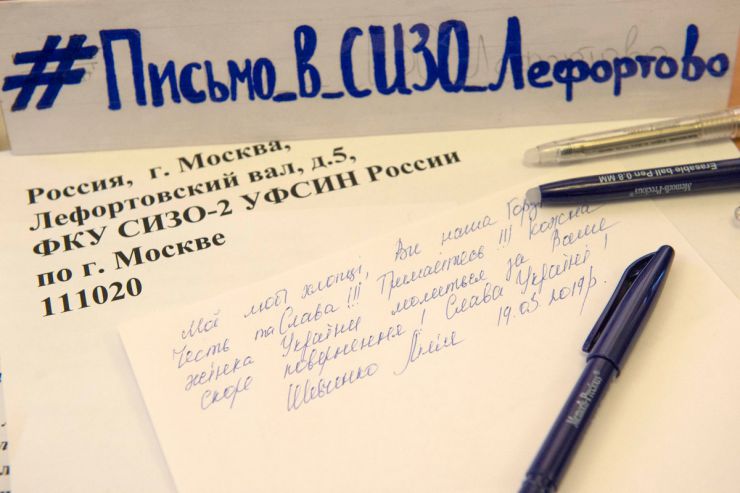 #Письмо_в_СИЗО_Лефортово
Россия, г. Москва,
Лефортовский вал, д.5,
ФКУ СИЗО-2 УФСИН России
по г. Москве
111020
Мої любі хлопці, Ви наша Горд
Честь та Слава!!! Тримайтесь!!! Кожна
жінка України молиться за Ваше
скоре повернення! Слава Україні!
Шевченко Лілія 19.03.2019р.
Erasable ball Pen 0.8 MM
Memoh-Precious
Memoh-Precious